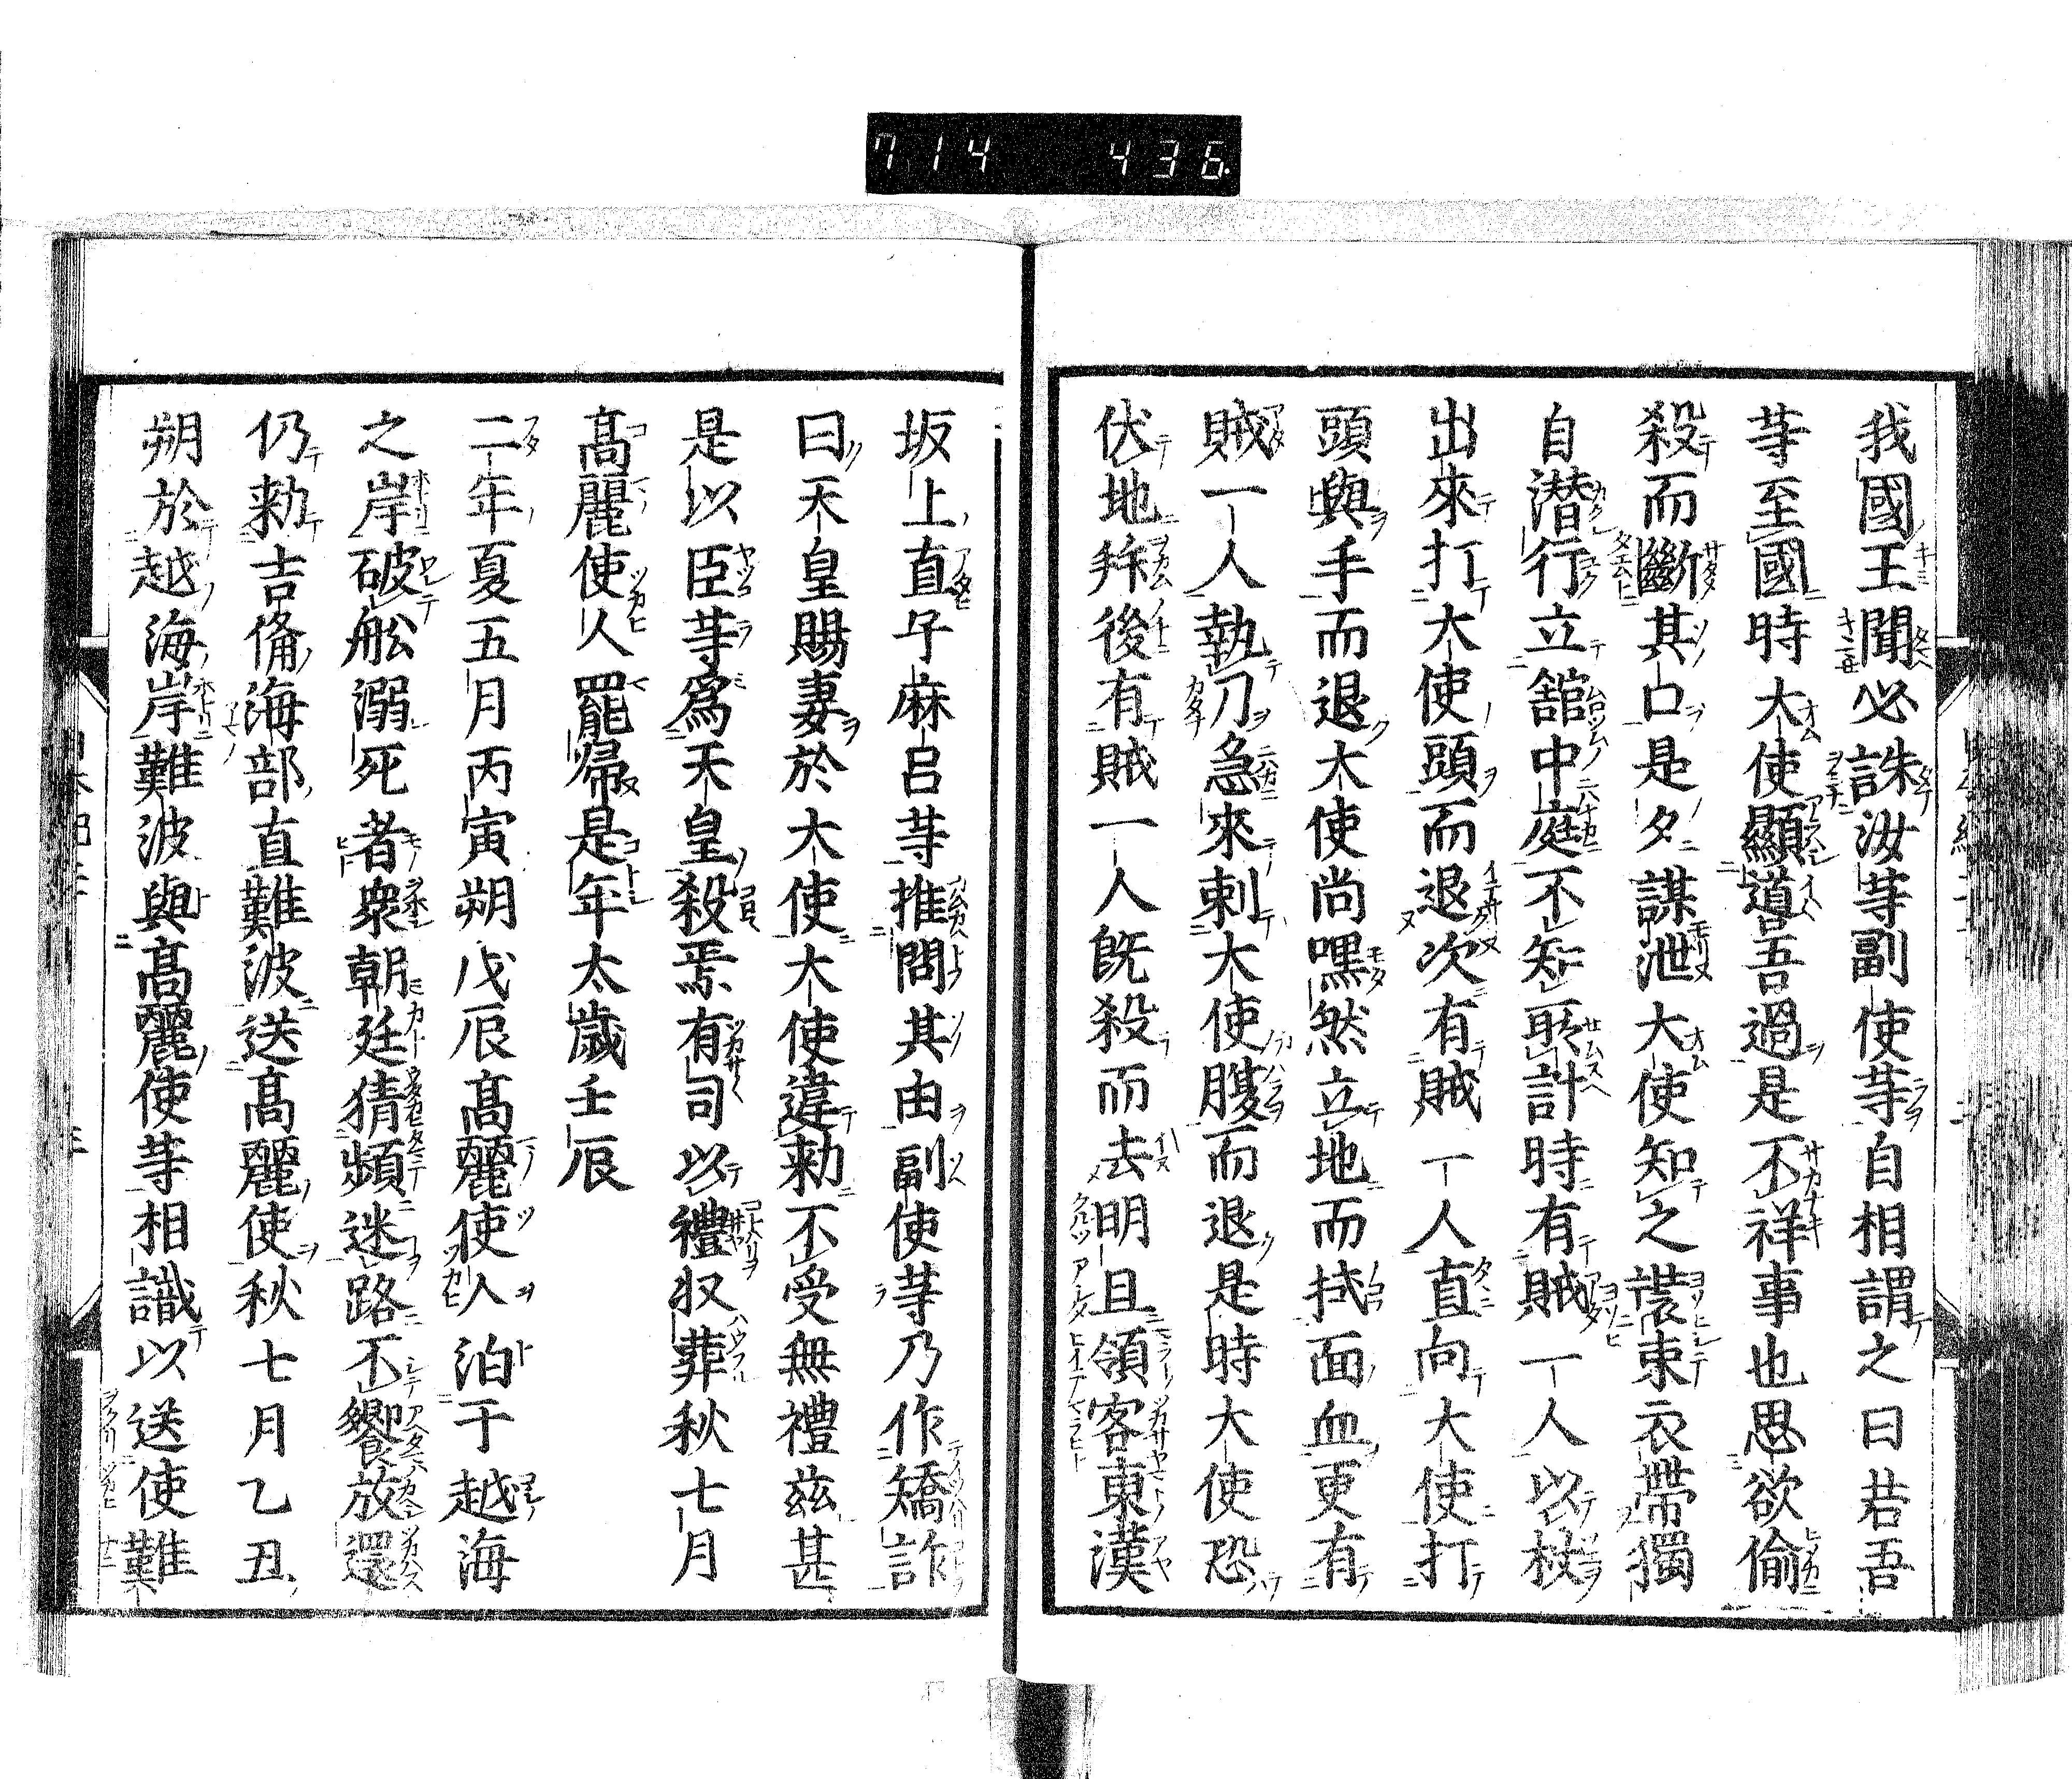 714 436
我國王聞必誅汝等副使等自相謂之曰若吾
等至國時大使顯噵吾過是不祥事也思欲偷
殺而斷其口是夕謀泄大使知之裝束衣帶獨
自潜行立舘中庭不知所計時有賊一人以杖
出來打大使頭而退次有賊一人直向大使打
頭與手而退大使尚嘿然立地而拭面血更有
賊一人執刀急來刺大使腹而退是時大使恐
伏地拜後有賊一人既殺而去明旦領客東漢
坂上直子麻呂等推問其由副使等乃作矯詐
曰天皇賜妻於大使大使違勅不受無禮茲甚
是以臣等爲天皇殺焉有司以禮収葬秋七月
髙麗使人罷歸是年太歲壬辰
二年夏五月丙寅朔戊辰髙麗使人泊于越海
之岸破舩溺死者衆朝廷猜頻迷路不饗放還
仍勅吉備海部直難波送髙麗使秋七月乙丑
朔於越海岸難波與髙麗使等相議以送使難